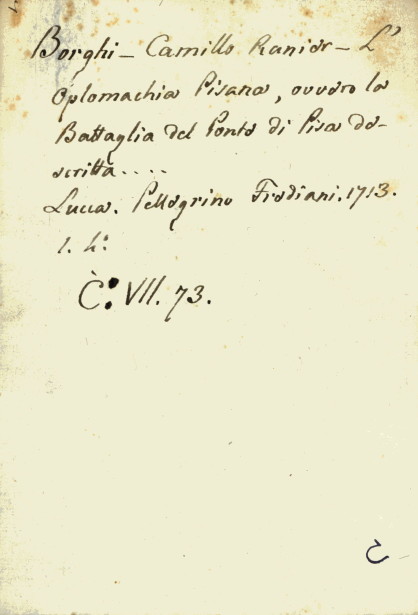 Borghi - Camillo Ranier - L'
Oplomachia Pisana, ovvero la
Battaglia del Ponte di Pisa de-
scritta....
Lucca. Pellegrino Frediani. 1713.
1. 4°:
C. VII. 73.